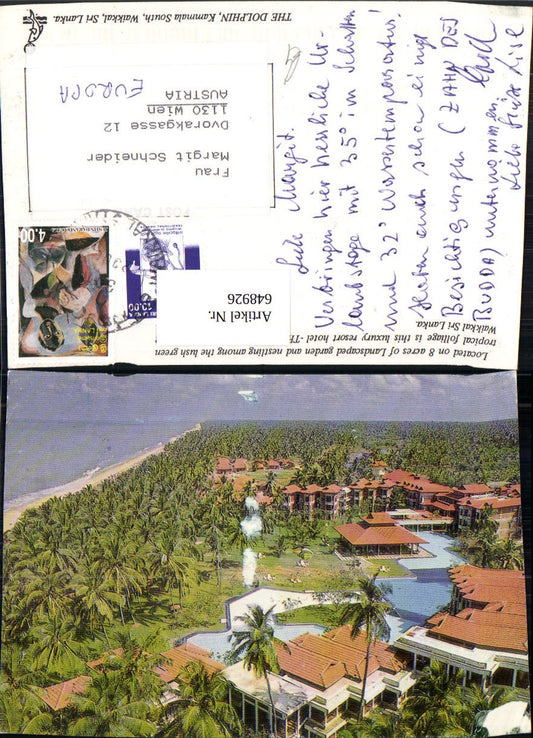 THE DOLPHIN, Kammala South, Waikkal, Sri Lanka.
Frau
Margit Schneider
Dvorakgasse 12
1130 Wien
AUSTRIA
EUROPA
4.00
SRI LANKA
15.00
Artikel Nr.
648926
Liebe Margit.
Verbringen hier herrliche Ur-
laubstage mit 35° im Schatten
und 32° Wassertemperatur!
Haben auch schon einige
Besichtigungen (ZAHN DES
BUDDA) unternommen,
Liebe Grüße Lise
Located on 8 acres of Landscaped garden and nestling among the lush green
tropical folliage is this luxury resort hotel -TH
Waikkal Sri Lanka.